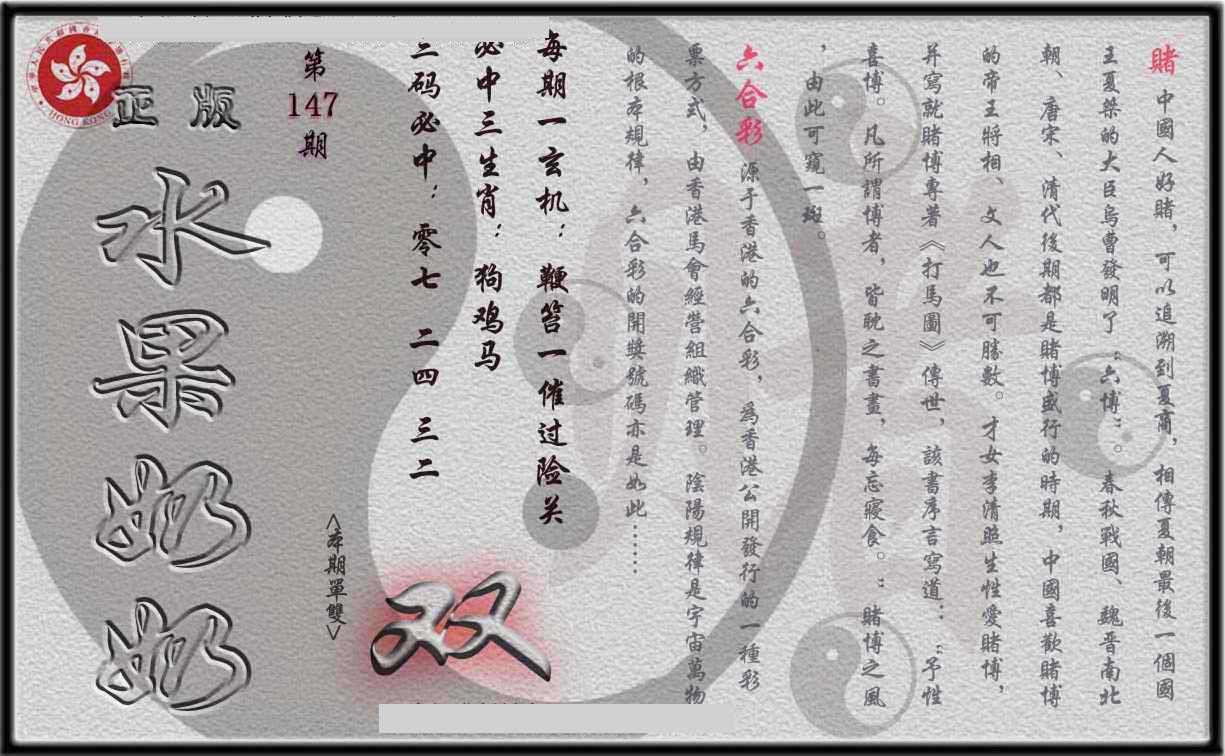 賭 中國人好賭，可以追溯到夏商，相傳夏朝最後一個國
王夏桀的大臣烏曹發明了“六博”。春秋戰國、魏晋南北
朝、唐宋、清代後期都是賭博盛行的時期，中國喜歡賭博
的帝王將相、文人也不可勝數。才女李清照生性愛賭博，
并寫就賭博專著《打馬圖》傳世，該書序言寫道：“予性
喜博。凡所謂博者，皆耽之書畫，每忘寢食。”賭博之風
，由此可窺一斑。
六合彩 源于香港的六合彩，爲香港公開發行的一種彩
票方式，由香港馬會經營組織管理。陰陽規律是宇宙萬物
的根本規律，六合彩的開獎號碼亦是如此……
每期一玄机：鞭笞一催过险关
必中三生肖：狗鸡马
三码必中：零七 二四 三二
双
<本期單雙>
第147期
正版
水果奶奶
HONG KONG